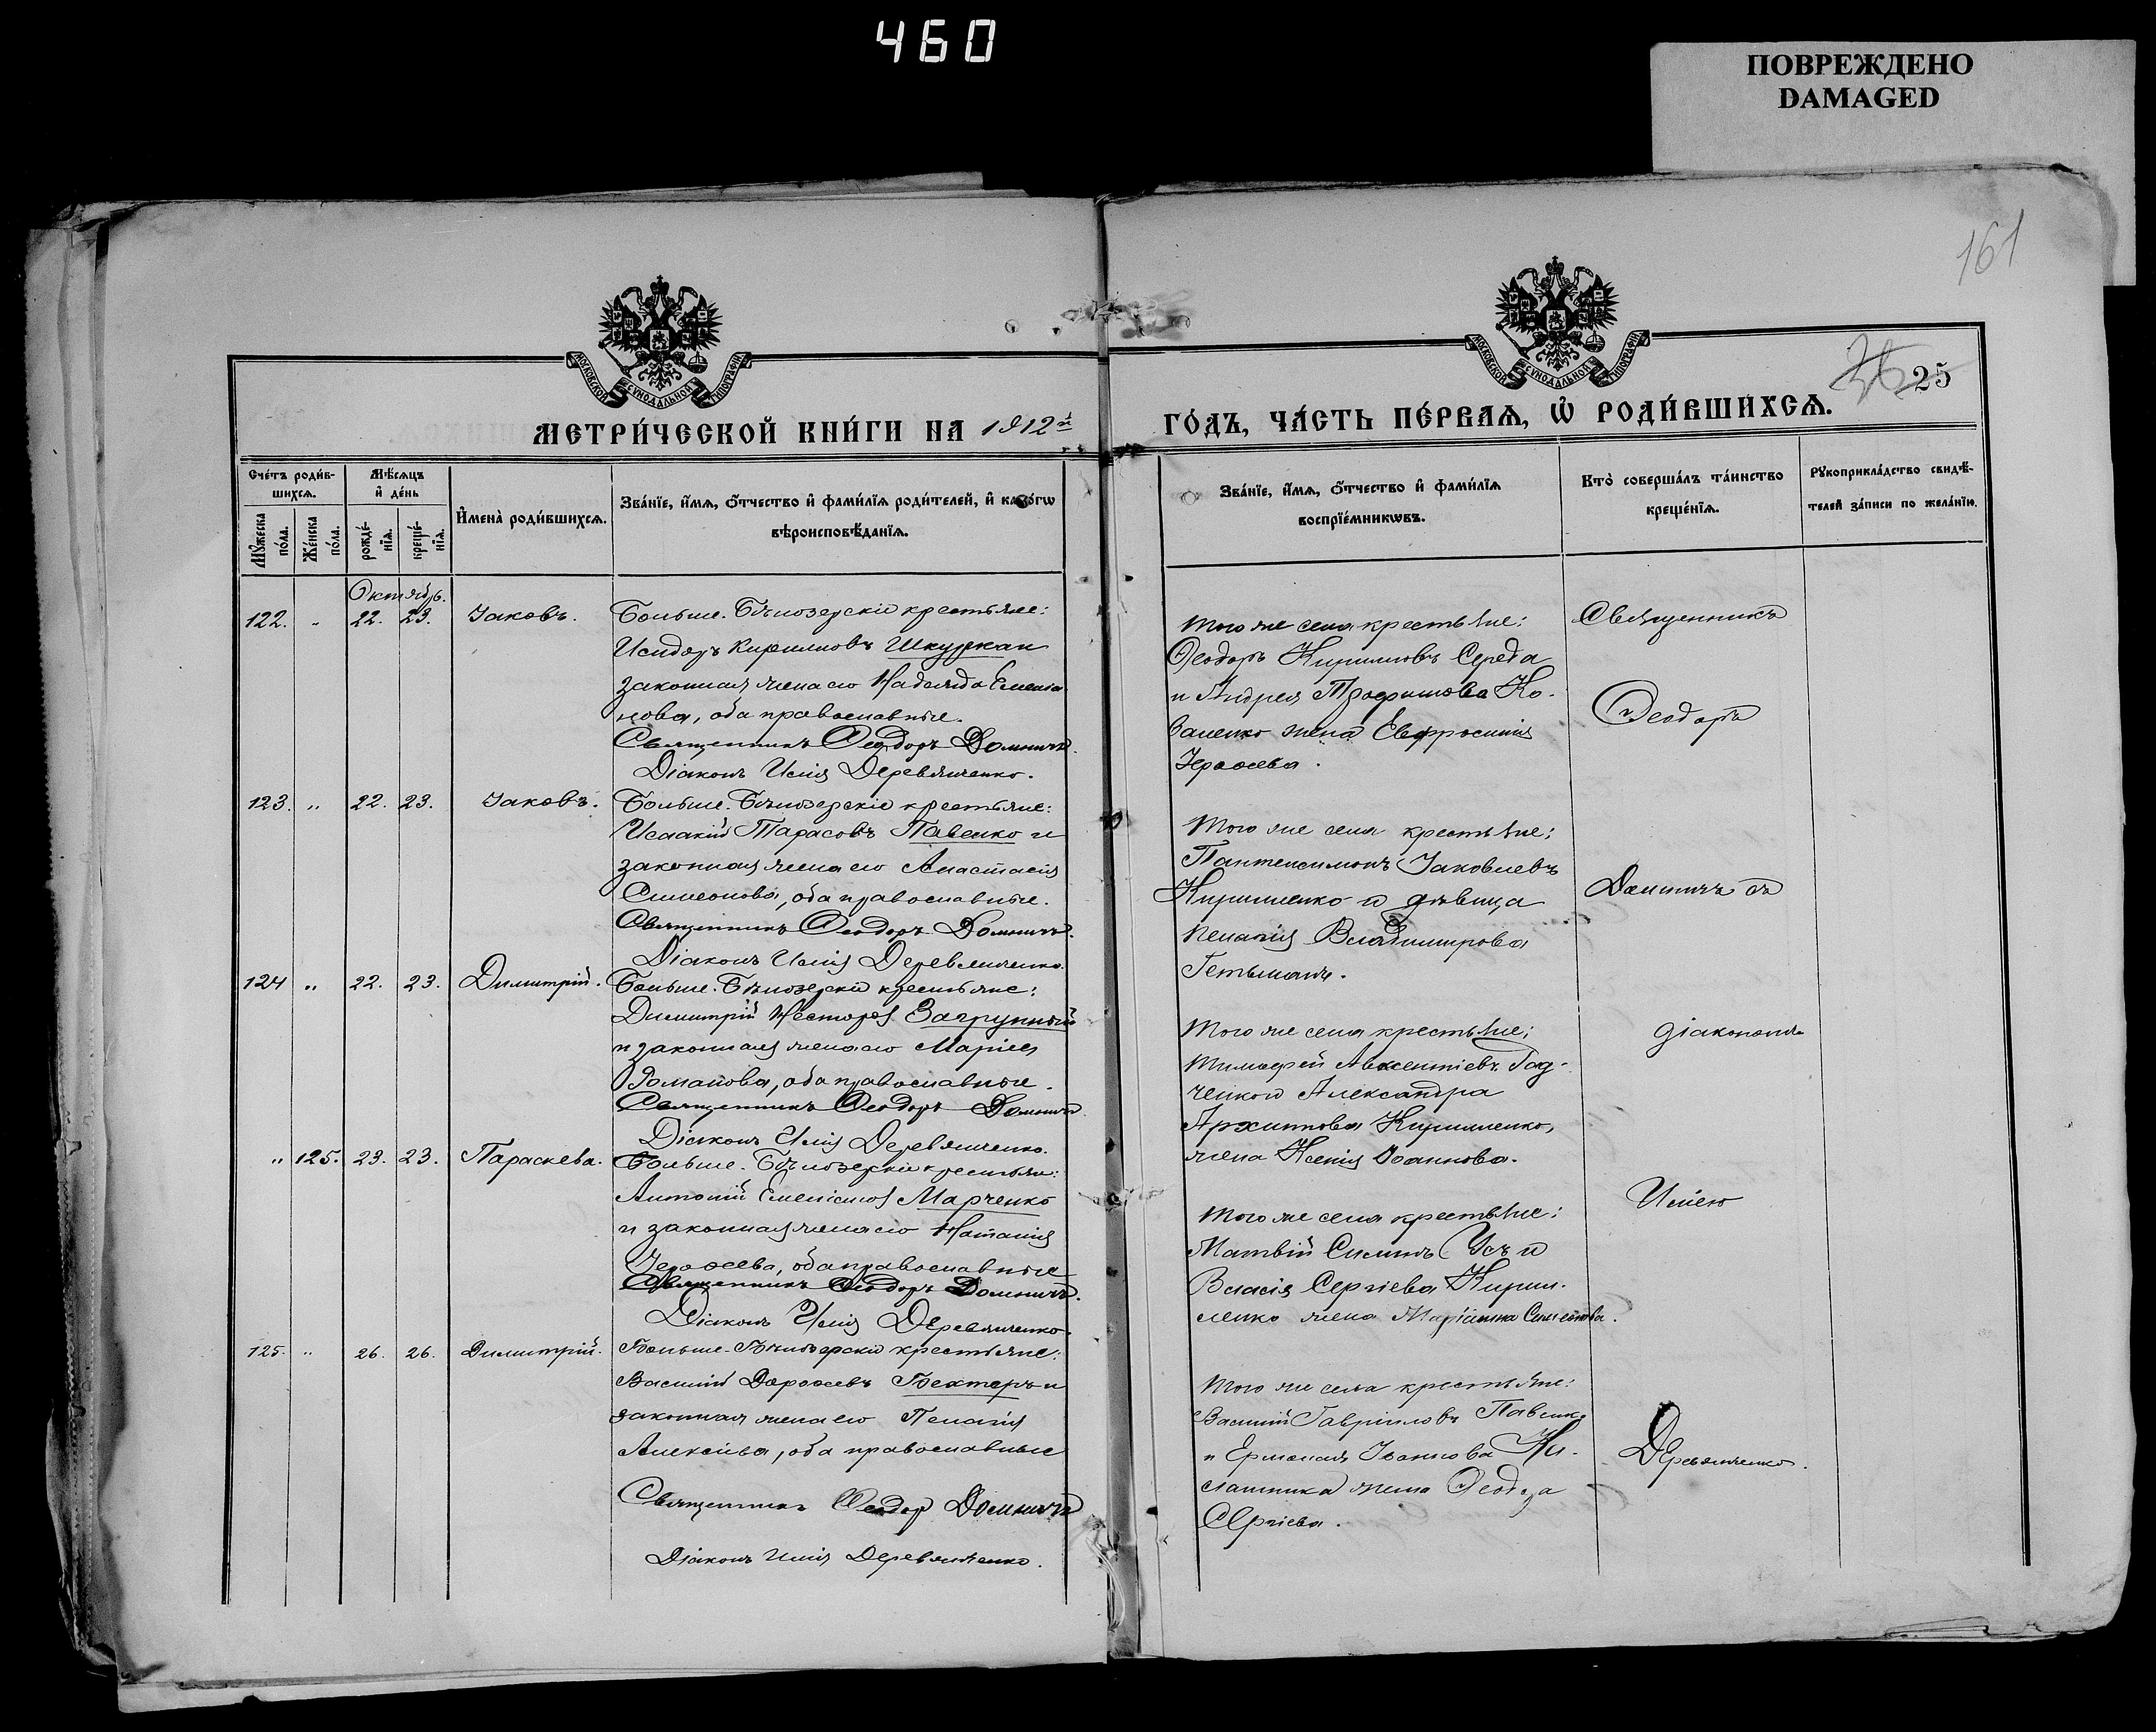 460
ПОВРЕЖДЕНО
DAMAGED
161
МОСКОВСКОЙ СУНОДАЛЬНОЙ ТИПОГРАФІИ
МОСКОВСКОЙ СУНОДАЛЬНОЙ ТИПОГРАФІИ
25
МЕТРИ́ЧЕСКОЙ КНИ́ГИ НА 1912й
ГО́ДЪ, ЧА́СТЬ ПЕ́РВАѦ, Ѽ РОДИ́ВШИХСѦ.
Сче́тъ роди́в-
шихсѧ.
Мѣ́сѧцъ
и҆ де́нь
Мꙋ́жеска по́ла.
Же́нска по́ла.
рожде́-нїѧ.
креще́-нїѧ.
И҆мена̀ роди́вшихсѧ.
Зва́нїе, и҆́мѧ, ѻ҆́тчество и҆ фами́лїѧ роди́телей, и҆ како́гѡ
вѣроисповѣ́данїѧ.
Зва́нїе, и҆́мѧ, ѻ҆́тчество и҆ фами́лїѧ
воспрїе́мникѡвъ.
Кто̀ соверша́лъ та́инство
креще́нїѧ.
Рꙋкоприкла́дство свидѣ́-
телей за́писи по жела́нїю.
Октябрь.
122. „ 22. 23. Іаковъ.
Больше-Бѣлозерскіе крестьяне:
Исидоръ Кирилловъ Шкуркан
законная жена его Надежда Емелiа
нова, оба православные.
Священникъ Ѳеодоръ Домничъ.
Діаконъ Илія Деревянченко.
Того же села крестьяне:
Ѳеодоръ Кирилловъ Середа
и Андрея Трофимова Ко-
валенко жена Евфросинія
Іероѳеева.
123. „ 22. 23. Іаковъ.
Больше-Бѣлозерскіе крестьяне:
Исаакій Тарасовъ Павенко и
законная жена его Анастасія
Симеонова, оба православные.
Священникъ Ѳеодоръ Домничъ.
Діаконъ Илія Деревянченко.
Того же села крестьяне:
Пантелеимонъ Іаковлевъ
Кириленко и дѣвица
Пелагія Владимирова
Гетьманъ.
124 „ 22. 23. Димитрій.
Больше-Бѣлозерскіе крестьяне:
Димитрій Несторовъ Загрунный
и законная жена его Марія
Романова, оба православные.
Священникъ Ѳеодоръ Домничъ.
Діаконъ Илія Деревянченко.
Того же села крестьяне:
Тимоѳей Авксентіевъ Гад-
ченко и Александра
Архипова Кириленко,
жена Ксенія Іоаннова.
„ 125. 23. 23. Параскева.
Больше-Бѣлозерскіе крестьяне:
Антоній Емеліановъ Марченко
и законная жена его Наталія
Іероѳеева, оба православные
Священникъ Ѳеодоръ Домничъ.
Діаконъ Илія Деревянченко.
Того же села крестьяне:
Матвій Силинъ Усъ и
Власія Сергіева Кирил-
ленко жена Маріамна Симеонова.
125. „ 26. 26. Димитрій.
Больше-Бѣлозерскіе крестьяне:
Василій Дороѳеевъ Бехтеръ и
законная жена его Пелагія
Алексіева, оба православные
Священникъ Ѳеодор Домничъ
Діаконъ Илія Деревянченко.
Того же села крестьяне:
Василій Гавріиловъ Павенко
и Ермолая Іоаннова Ки-
слашника жена Ѳеодора
Сергіева.
Священникъ
Ѳеодоръ
Домничъ съ
діакономъ
Иліею
Деревянченко.